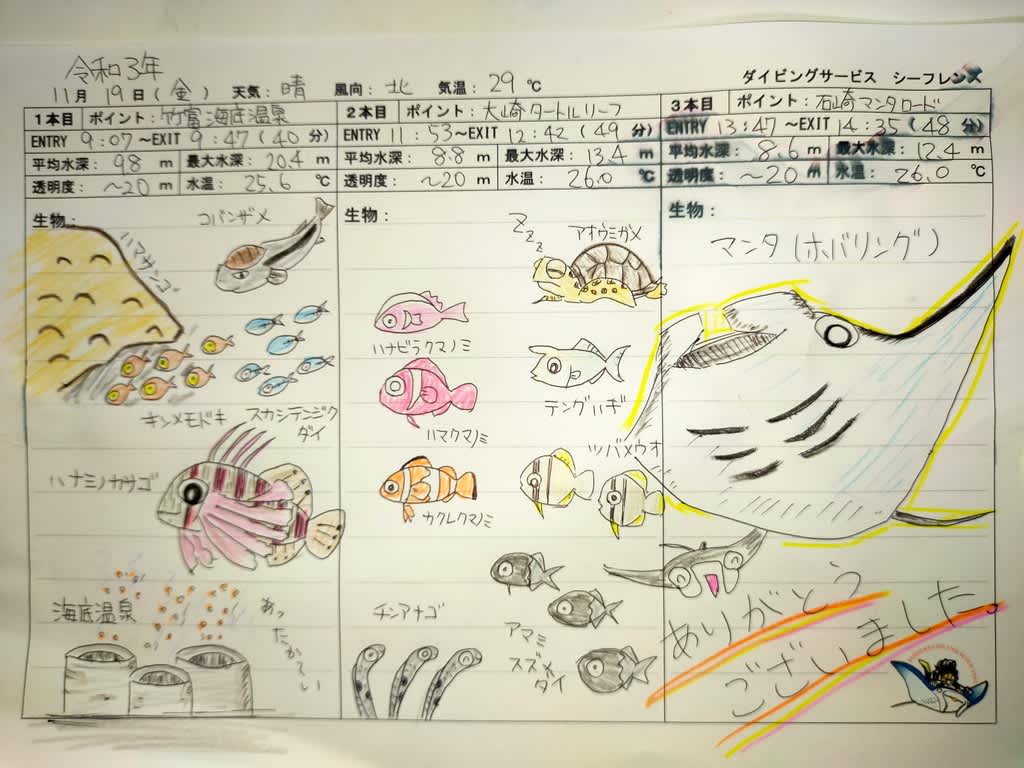 令和3年
11月 19日(金) 天気：晴 風向：北 気温：29℃
ダイビングサービス シーフレンズ
1本目 ポイント：竹富海底温泉
ENTRY 9:07～EXIT 9:47(40分)
平均水深：9.8m 最大水深：20.4m
透明度：～20m 水温：25.6℃
生物：
コバンザメ
ハマサンゴ
キンメモドキ
スカシテンジク
ダイ
ハナミノカサゴ
海底温泉
あったかーい
2本目 ポイント：大崎タートルリーフ
ENTRY 11:53～EXIT 12:42(49分)
平均水深：8.8m 最大水深：13.4m
透明度：～20m 水温：26.0℃
生物：
Zzz
アオウミガメ
ハナビラクマノミ
テングハギ
ハマクマノミ
ツバメウオ
カクレクマノミ
チンアナゴ
アマミ
スズメ
ダイ
3本目 ポイント：石崎マンタロード
ENTRY 13:47～EXIT 14:35(48分)
平均水深：8.6m 最大水深：12.4m
透明度：～20m 水温：26.0℃
生物：
マンタ(ホバリング)
ありがとう
ございました。